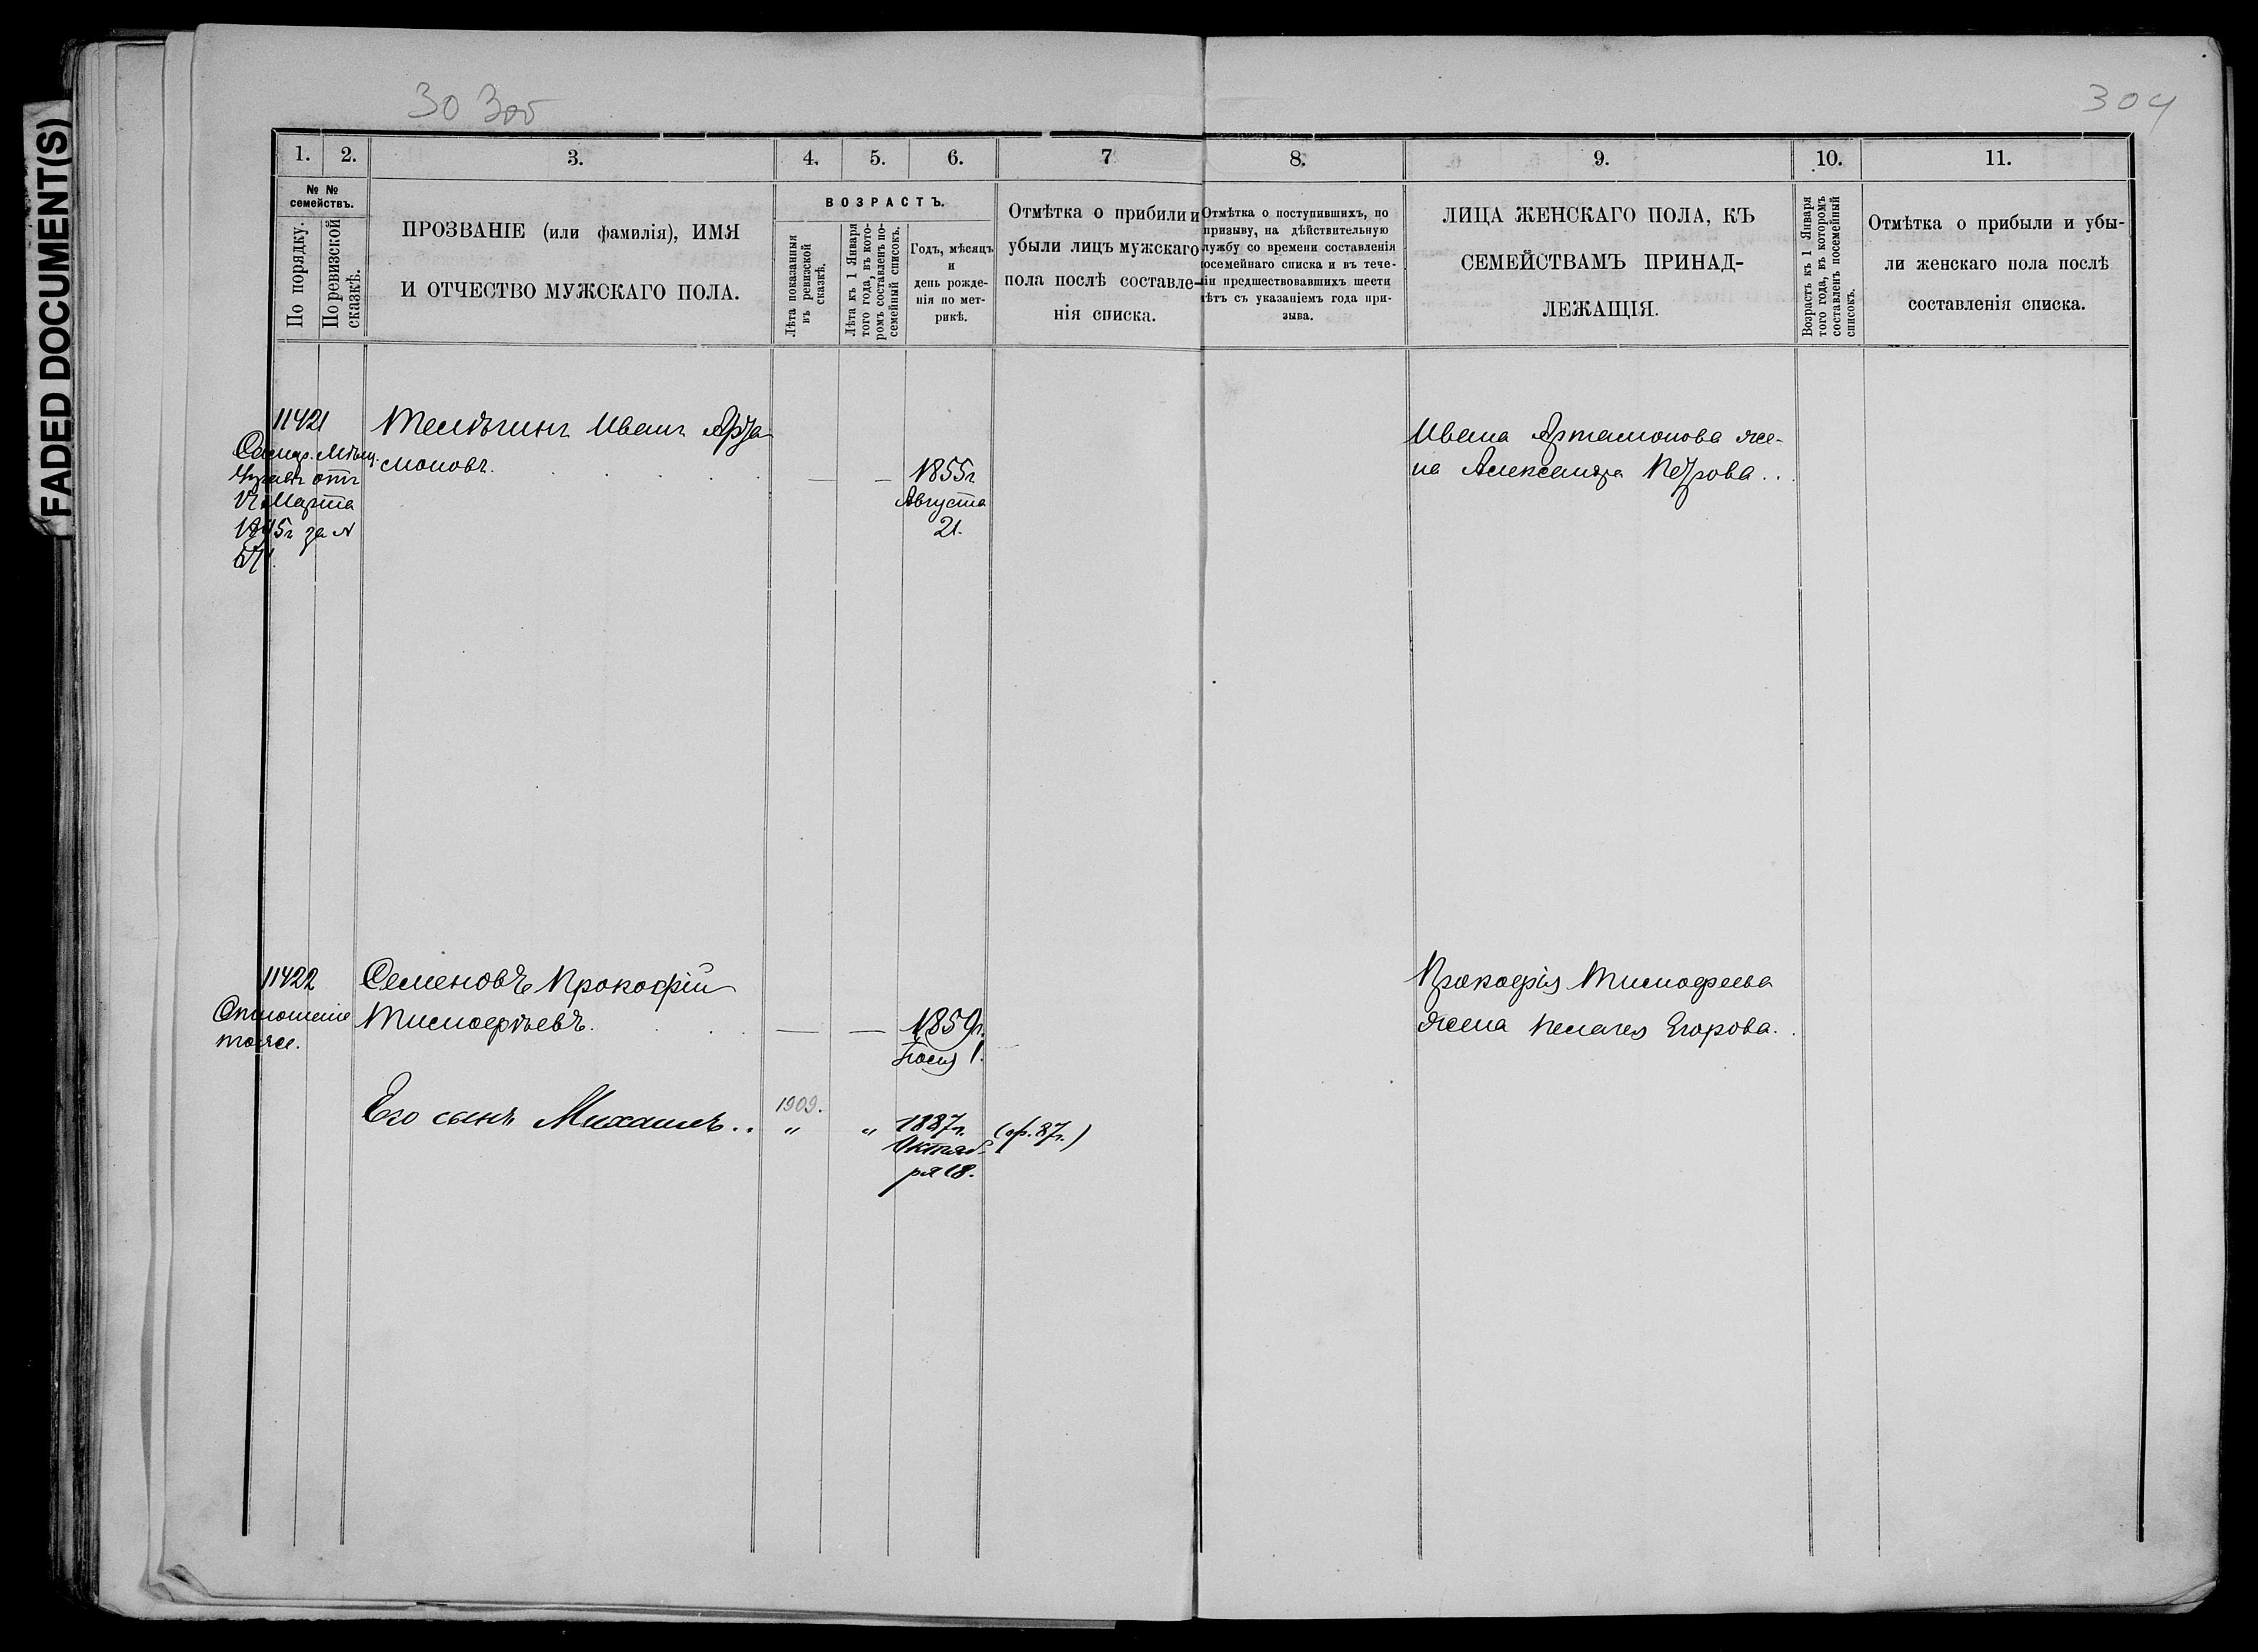 FADED DOCUMENT(S)
30 300
304
1. 2. 3. 4. 5. 6. 7 8. 9. 10. 11.
№ №
семействъ.
По порядку.
По ревизской
сказкѣ.
ПРОЗВАНІЕ (или фамилія), ИМЯ
И ОТЧЕСТВО МУЖСКАГО ПОЛА.
ВОЗРАСТЪ.
Лѣта показанныя
въ ревизской
сказкѣ.
Лѣта къ 1 Января
того года, въ кото-
ромъ составленъ по-
семейный списокъ.
Годъ, мѣсяцъ
и
день рожде-
нія по мет-
рикѣ.
Отмѣтка о прибыли и
убыли лицъ мужскаго
пола послѣ составле-
нія списка.
Отмѣтка о поступившихъ, по
призыву, на дѣйствительную
службу со времени составленія
посемейнаго списка и въ тече-
ніи предшествовавшихъ шести
лѣтъ съ указаніемъ года при-
зыва.
ЛИЦА ЖЕНСКАГО ПОЛА, КЪ
СЕМЕЙСТВАМЪ ПРИНАД-
ЛЕЖАЩІЯ.
Возрастъ къ 1 Января
того года, въ которомъ
составленъ посемейный
списокъ.
Отмѣтка о прибыли и убы-
ли женскаго пола послѣ
составленія списка.
11421
Мѣщ.
Управы отъ
Марта
за №
Телѣгинъ Иванъ Арта
моновъ.
1855г
Августа
21.
Ивана Артамонова же-
на Александра Петрова..
11422
Отношеніе
тоже.
Семеновъ Прокофій
Тимофѣевъ.
1859г.
1.
Прокофія Тимофеева
жена Пелагея Егорова.
Его сынъ Михаилъ..
1909.
" "
1887г.
Октяб-
ря 18.
(пр. 87г.)